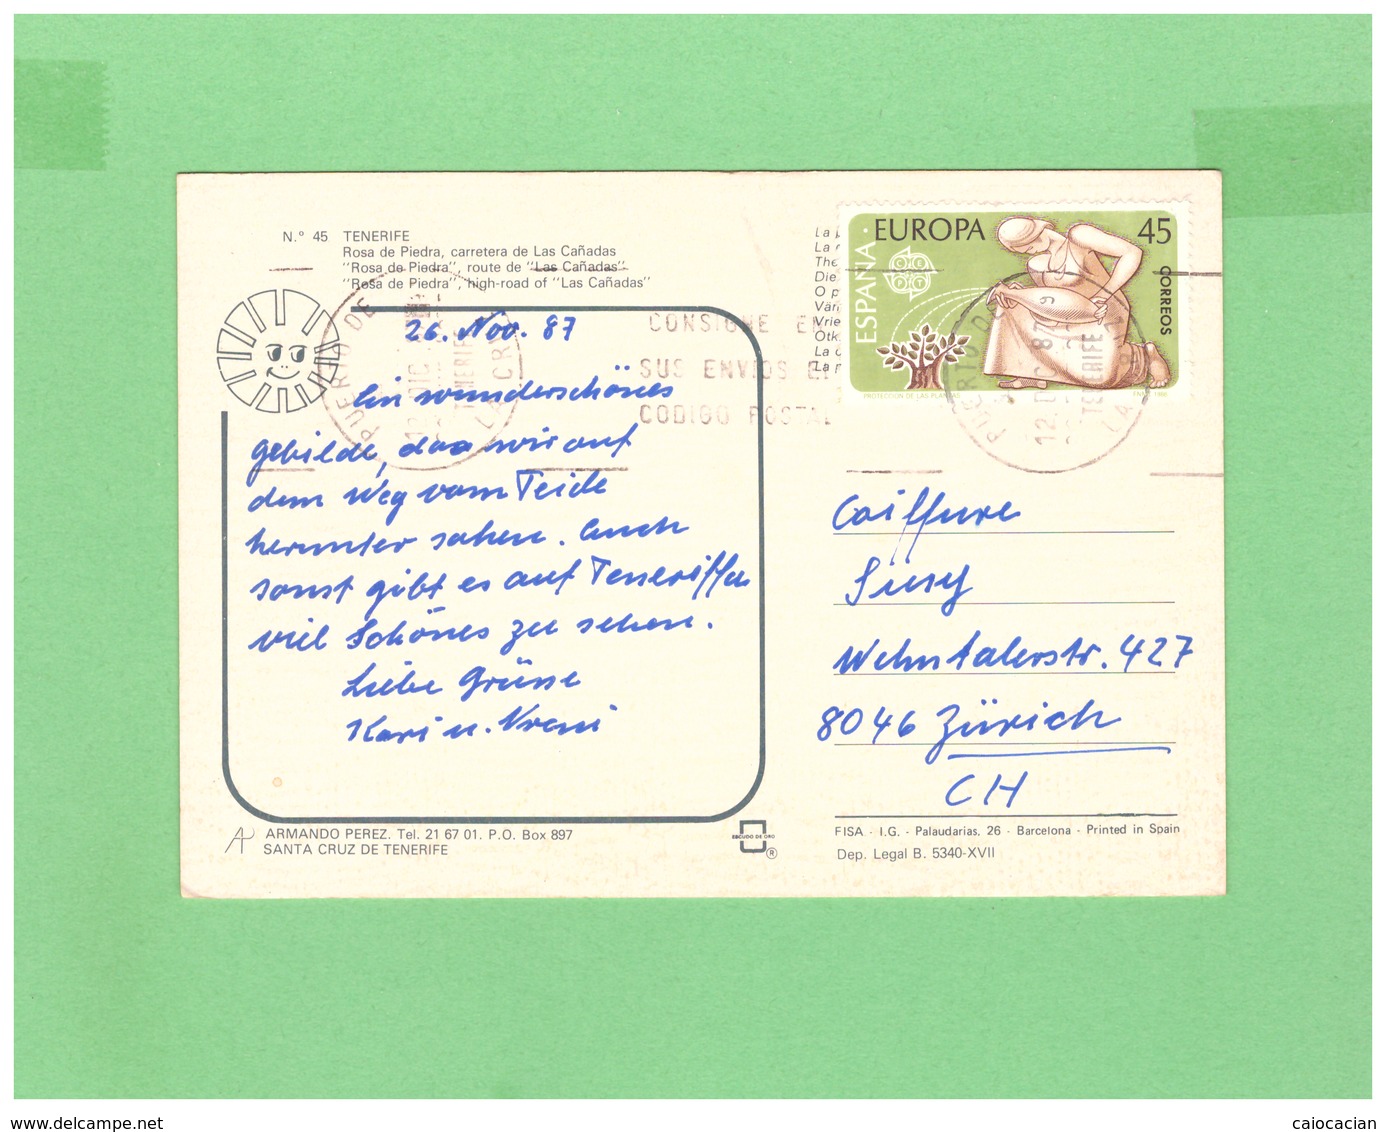 N.º 45 TENERIFE
Rosa de Piedra, carretera de Las Cañadas
"Rosa de Piedra", route de "Las Cañadas"
"Rosa de Piedra", high-road of "Las Cañadas"
26. Nov. 87
Ein wunderschönes
gebilde, das wir auf
dem Weg vom Teide
herunter sahen. Auch
sonst gibt es auf Teneriffa
viel Schönes zu sehen.
Liebe Grüsse
Kari u. Vreni
ARMANDO PEREZ. Tel. 21 67 01. P.O. Box 897
SANTA CRUZ DE TENERIFE
ESCUDO DE ORO
®
CONSIGNE EN
SUS ENVIOS EL
CODIGO POSTAL
PUERTO DE LA CRUZ
TENERIFE
12 DIC
EUROPA 45
ESPAÑA
CEPT
CORREOS
PROTECCION DE LAS PLANTAS
PUERTO DE LA
12 DIC 87
TENERIFE
Coiffure
Susy
Wehntalerstr. 427
8046 Zürich
CH
FISA - I.G. - Palaudarias, 26 - Barcelona - Printed in Spain
Dep. Legal B. 5340-XVII
www.delcampe.net
caiocacian